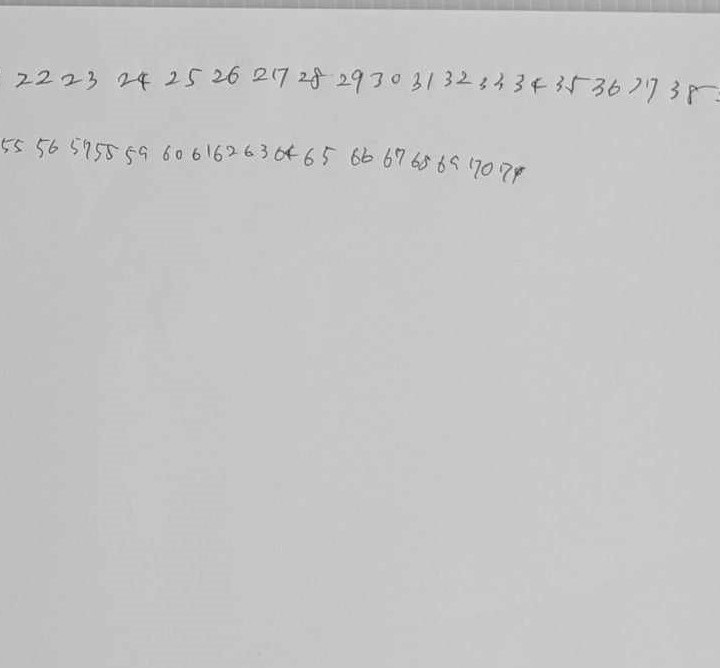 22 23 24 25 26 27 28 29 30 31 32 33 34 35 36 37 38
55 56 57 58 59 60 61 62 63 64 65 66 67 68 69 70